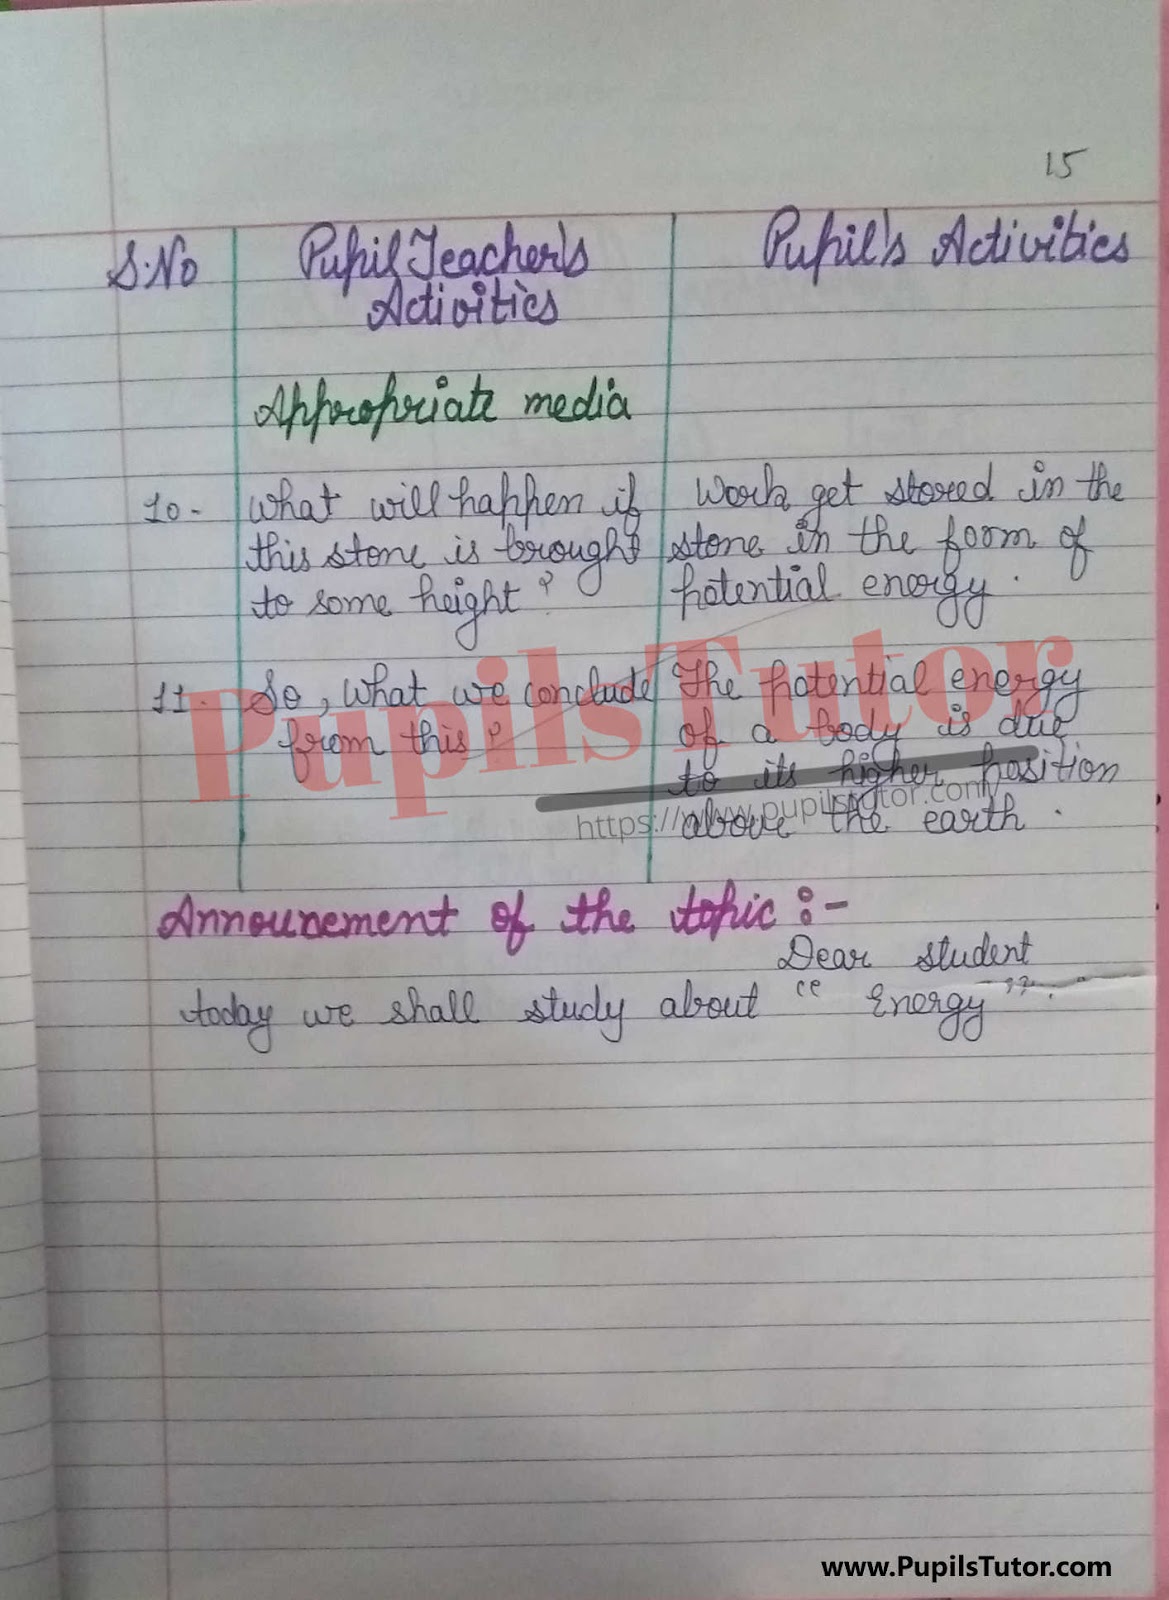 15
S.No Pupil Teacher's Pupil's Activities
Activities
Appropriate media
10- What will happen if Work get stored in the
this stone is brought stone in the form of
to some height? potential energy.
11- So, what we conclude The potential energy
from this? of a body is due
to its higher position
above the earth.
PupilsTutor
https://www.pupilstutor.com/
Announcement of the topic :-
Dear student
today we shall study about "Energy".
www.PupilsTutor.com